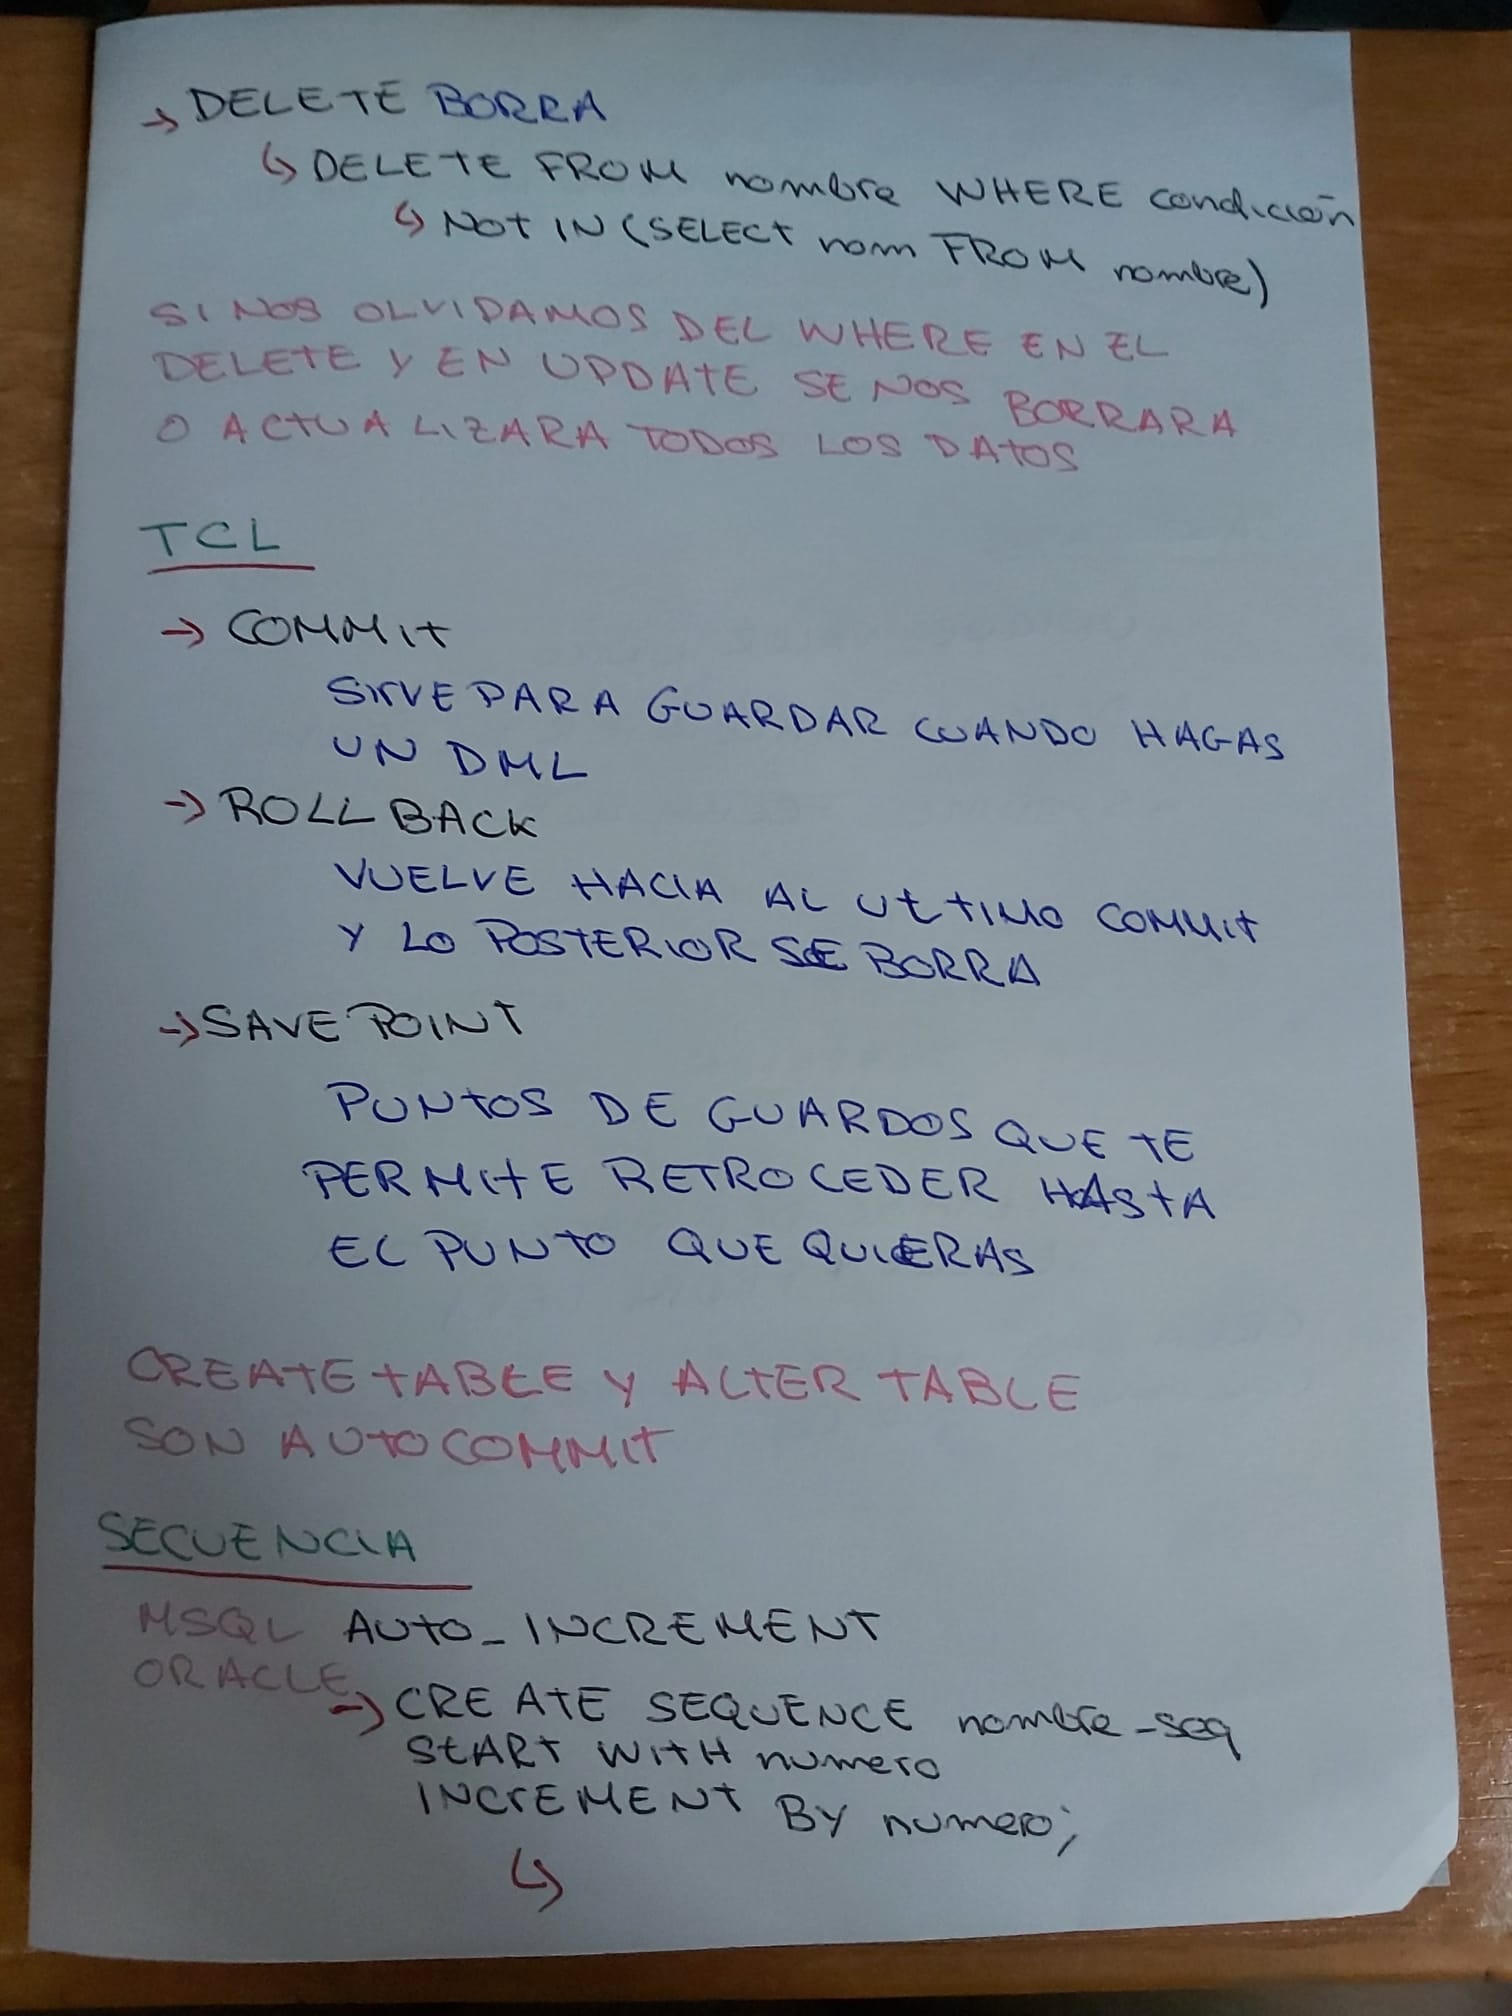 → DELETE BORRA
↳ DELETE FROM nombre WHERE condición
↳ NOT IN (SELECT nom FROM nombre)
SI NOS OLVIDAMOS DEL WHERE EN EL
DELETE Y EN UPDATE SE NOS BORRARA
O ACTUALIZARA TODOS LOS DATOS
TCL
→ COMMIT
SIRVE PARA GUARDAR CUANDO HAGAS
UN DML
→ ROLLBACK
VUELVE HACIA AL ULTIMO COMMIT
Y LO POSTERIOR SE BORRA
→ SAVEPOINT
PUNTOS DE GUARDOS QUE TE
PERMITE RETROCEDER HASTA
EL PUNTO QUE QUIERAS
CREATE TABLE Y ALTER TABLE
SON AUTOCOMMIT
SECUENCIA
MSQL AUTO_INCREMENT
ORACLE
→ CREATE SEQUENCE nombre_seq
START WITH numero
INCREMENT BY numero;
↳